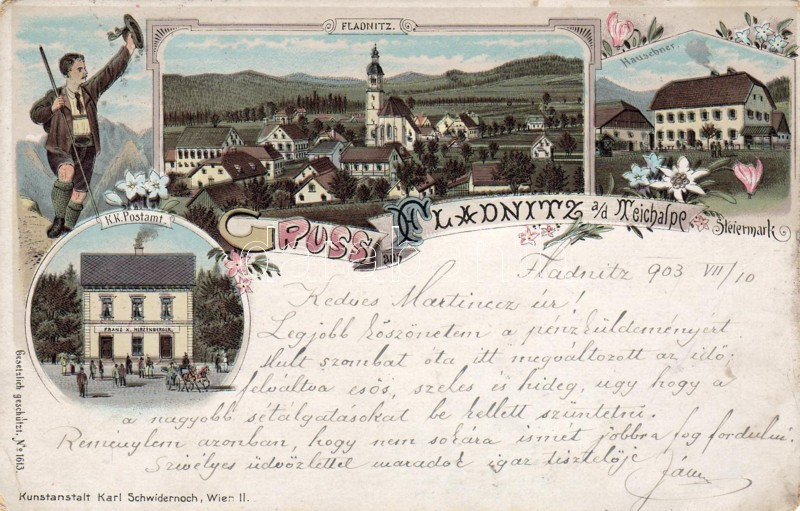 FLADNITZ.
Hausebner.
K.K. Postamt.
GRUSS aus FLADNITZ a/d Teichalpe
Steiermark
FRANZ X. HERZENBERGER
Fladnitz 903 VII/10
Kedves Martinecz úr!
Legjobb köszönetem a pénzküldeményért.
Mult szombat óta itt megváltozott az idő:
felváltva esős, szeles és hideg, ugy hogy a
a nagyobb sétálgatásokat be kellett szüntetni.
Reménylem azonban, hogy nem sokára ismét jobbra fog fordulni.
Szivélyes üdvözlettel maradok igaz tisztelője
Gesetzlich geschützt, No 1613.
Kunstanstalt Karl Schwidernoch, Wien II.